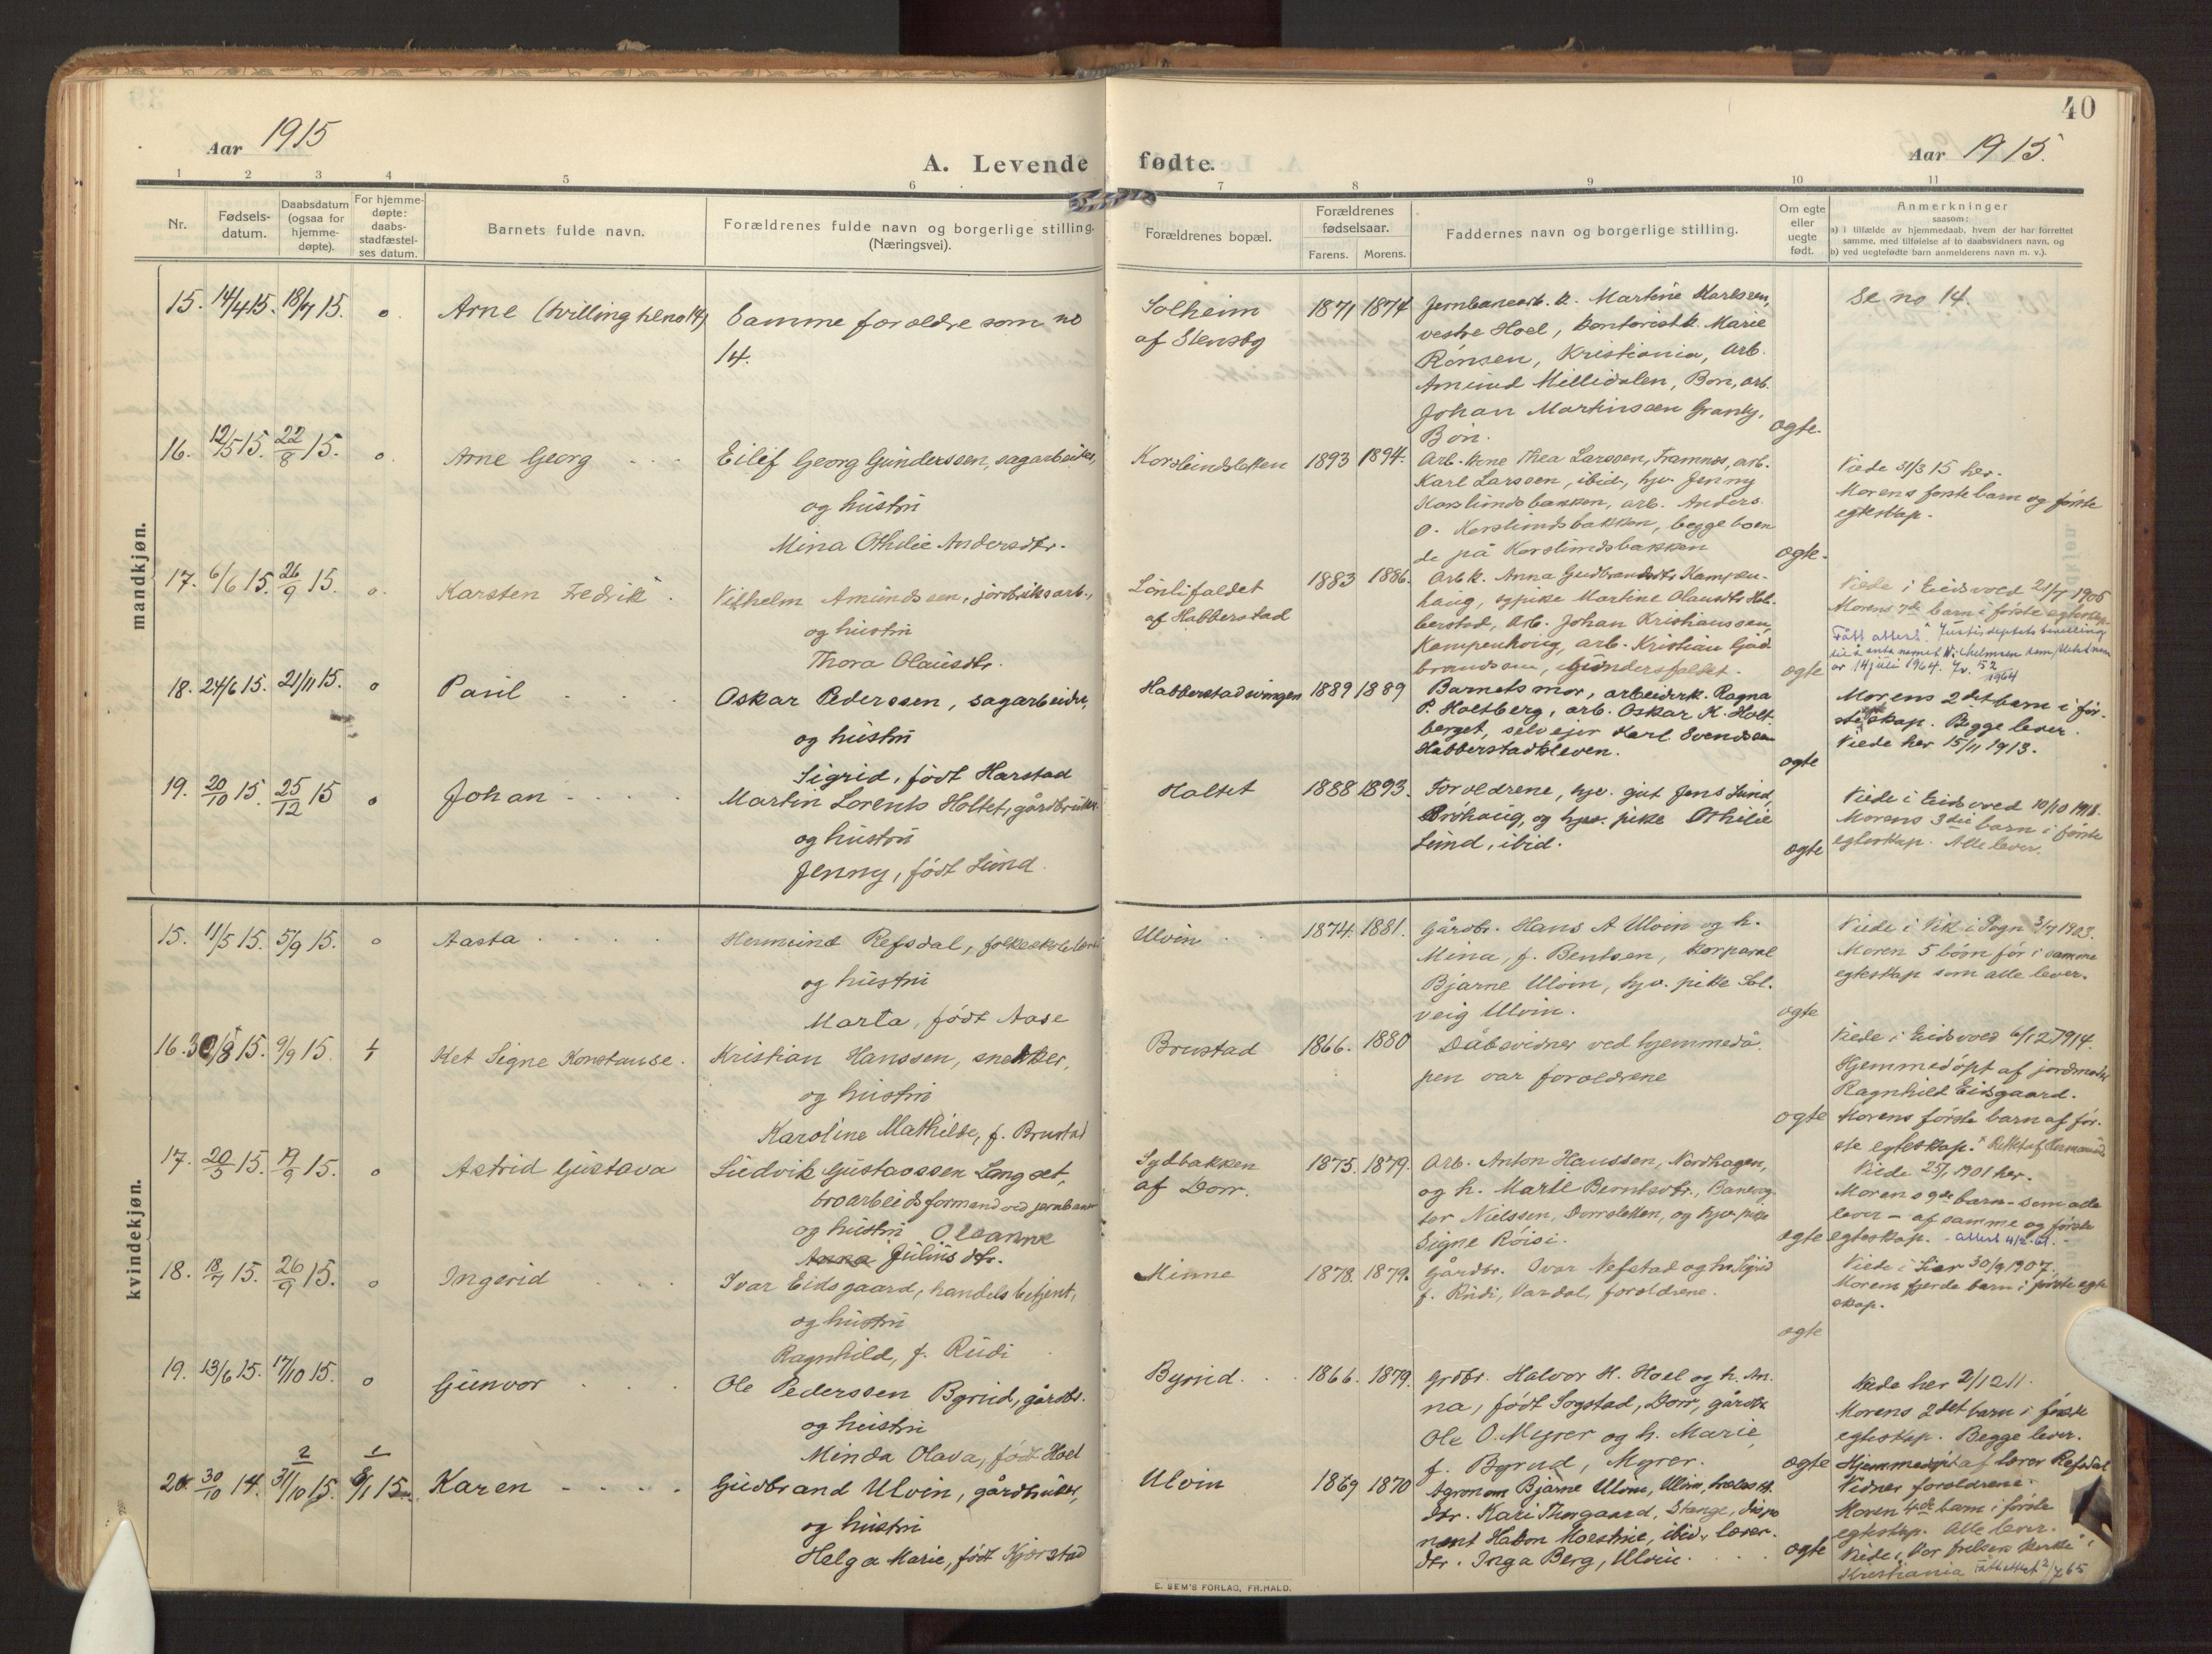 40
Aar 1915
A. Levende fødte.
Aar 1915.
1 2 3 4 5 6 7 8 9 10 11
Nr.
Fødsels-
datum.
Daabsdatum
(ogsaa for
hjemme-
døpte).
For hjemme-
døpte:
daabs-
stadfæstel-
ses datum.
Barnets fulde navn.
Forældrenes fulde navn og borgerlige stilling.
(Næringsvei).
Forældrenes bopæl.
Forældrenes
fødselsaar.
Farens. Morens.
Faddernes navn og borgerlige stilling.
Om egte
eller
uegte
født.
Anmerkninger
saasom:
a) i tilfælde av hjemmedaab, hvem der har forrettet
samme, med tilføielse af to daabsvidners navn, og
b) ved uegtefødte barn anmelderens navn m. v.).
mandkjøn.
15. 14/4 15. 18/7 15. o. Arne (tvilling til no 14)
Samme foroldre som no
14.
Solheim
af Stensby
1871 1874
Jernbanearb. k. Martine Karlsen,
vestre Hoel, kontorist k. Marie
Rønsen, Kristiania, arb.
Amund Millidalen, Bøn, arb.
Johan Martinssen Granly,
Bøn.
ogte.
Se no 14.
16. 12/5 15. 22/8 15. o. Arne Georg
Eilif Georg Gunderssen, sagarbeider,
og hustru
Mina Othilie Andersdtr.
Korslundsletten
1893 1894.
Arb. kone Thea Larssen, Framnes, arb.
Karl Larssen, ibid., hjv. Jenny
Korslundsbakken, arb. Anders
O. Korslundsbakken, begge boen
de på Korslundsbakken
ogte.
Viede 31/3 15 her.
Morens første barn og første
egteskap.
17. 6/6 15. 26/9 15. o. Karsten Fredrik
Vilhelm Amundssen, jordbruksarb.,
og hustru
Thora Olausdtr.
Lønlifaldet
af Habberstad
1883 1886.
Arb k. Anna Gudbrandsdtr Kampen-
haug, sypike Martine Olausdtr Hab-
berstad, arb. Johan Kristianssen,
Kampenhaug, arb. Kristian Gud-
brandsen, Gundersfaldet.
ogte
Viede i Eidsvold 21/7 1906
Morens 7de barn i første egteskap.
Fått attest. Justisdeptets bevilling
til å anta navnet Wilhelmsen som slektsnavn
av 14 juli 1964. Jv. 52/1964
18. 24/6 15. 21/11 15. o Paul
Oskar Pederssen, sagarbeider,
og hustru
Sigrid, født Harstad
Habberstadsvingen
1889 1889
Barnets mor, arbeiderk. Ragna
P. Holtberg, arb. Oskar K. Holt-
berget, selveier Karl Svendsen
Habberstadkleven.
ogte
Morens 2det barn i før-
ste egteskap. Begge lever.
Viede her 15/11 1913.
19. 20/10 15. 25/12 15 o Johan
Martin Lorents Holtet, gårdbruker
og hustru
Jenny, født Lund.
Holtet
1888 1893.
Foroldrene, hjv. gut Jens Lund,
Brøhaug, og hjv. pike Othilie
Lund, ibid.
ogte
Viede i Eidsvold 10/10
Morens 3die barn i første
egteskap. Alle lever.
kvindekjøn.
15. 11/5 15. 5/9 15. o Aasta
Hermund Refsdal, folkeskolelærer
og hustru
Marta, født Aase
Ulvin
1874. 1881.
Gårdbr. Hans A Ulvin og h.
Mina, f. Bentsen, korporal
Bjarne Ulvin, hjv. pike Sol-
veig Ulvin.
ogte
Viede i Vik i Sogn 3/7 1903.
Moren 5 børn før i samme
egteskap som alle lever.
16. 30/8 15. 9/9 15. Ket Signe Konstanse.
Kristian Hanssen, snekker,
og hustru
Karoline Mathilde, f. Brustad
Brustad
1866. 1880
Dåbsvidner ved hjemmedå-
pen var foroldrene
ogte
Viede i Eidsvold 6/12 1914.
Hjemmedøpt af jordmoder
Ragnhild Eidsgaard.
Morens første barn af før-
ste egteskap.
17. 20/5 15. 19/9 15. o Astrid Gustava
Ludvik Gustavssen Langset,
broarbeidsformand ved jernbanen
og hustru Oleanne
Anna Juliusdtr.
Sydbakken
af Dorr.
1875. 1879.
Arb. Anton Hanssen, Nordhagen,
og h. Marte Berntsdtr., Banevog-
ter Nielssen, Dorrsletten, og hjv. pike
Signe Røisi.
ogte
Viede 25/1 1901 her.
Morens 9de barn - som alle
lever - af samme og første
egteskap. - attest 4/2-61.
18. 18/7 15. 26/9 15. o Ingerid
Ivar Eidsgaard, handelsbetjent,
og hustru
Ragnhild, f. Rudi
Minne
1878. 1879.
Gårdbr. Ivar Nefstad og h. Sigrid
f. Rudi, Vardal, foroldrene.
ogte
Viede i Lier 30/9 1907.
Morens fjerde barn i første egte
skap.
19. 13/6 15. 17/10 15. o Gunvor
Ole Pederssen Byrud, gårdbr.
og hustru
Minda Olava, født Hoel
Byrud
1866. 1879.
Grdbr. Halvor H. Hoel og h. An-
na, født Sogstad, Dorr, gårdbr.
Ole O. Myrer og h. Marie,
f. Byrud, Myrer.
ogte
Viede her 2/12 11.
Morens 2det barn i første
egteskap. Begge lever.
20. 30/10 14. 31/10 15. 1/1 15. Karen
Gudbrand Ulvin, gårdbruker,
og hustru
Helga Marie, født Kjerstad
Ulvin
1869 1870
Agronom Bjarne Ulvin, Ulvin,
Kari Thorgaard, Stange, dispo
nent Hakon Moestue, ibid., lærer-
Inga Berg, Ulvin.
ogte
Hjemmedøpt af lærer Refsdal
Vidner foroldrene.
Moren 4de barn i første
egteskap. Alle lever.
Viede i Vor Frelsers Kirke i
Kristiania Fått attest 2/7 65
E. SEM'S FORLAG, FR.HALD.